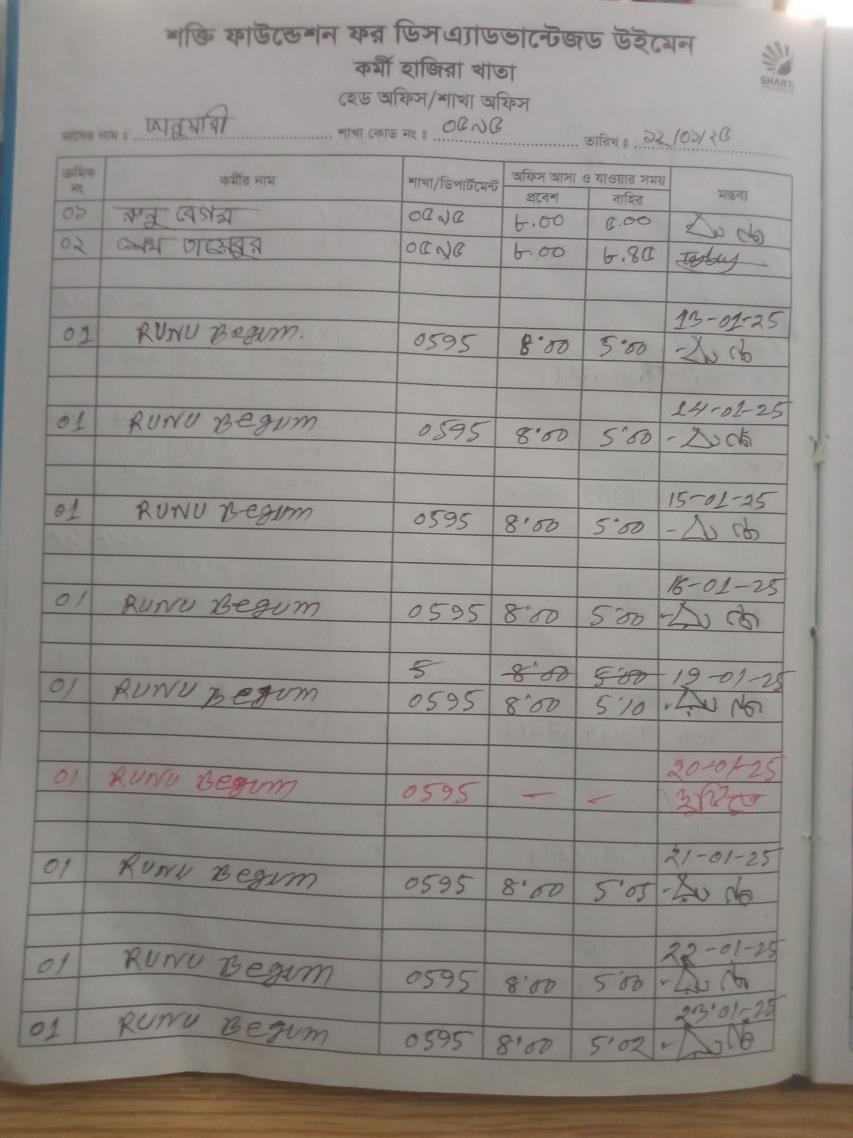 শক্তি ফাউন্ডেশন ফর ডিসএ্যাডভান্টেজড উইমেন
কর্মী হাজিরা খাতা
হেড অফিস/শাখা অফিস
SHAKTI
মাসের নাম : জানুয়ারী শাখা কোড নং : ০৫৯৫ তারিখ : ১২/০১/২৫
ক্রমিক নং কর্মীর নাম শাখা/ডিপার্টমেন্ট অফিস আসা ও যাওয়ার সময় মন্তব্য
প্রবেশ বাহির
০১ রুনু বেগম ০৫৯৫ ৮.০০ ৫.০০
০২ ০৫৯৫ ৮.০০ ৮.৪৫
13-01-25
01 RUNU Begum. 0595 8:00 5:00
14-01-25
01 RUNU Begum 0595 8:00 5:00
15-01-25
01 RUNU Begum 0595 8:00 5:00
16-01-25
01 RUNU Begum 0595 8:00 5:00
5 8:00 5:00 19-01-25
01 RUNU Begum 0595 8:00 5:10
20-01-25
01 RUNU Begum 0595 - -
21-01-25
01 RUNU Begum 0595 8:00 5:05
22-01-25
01 RUNU Begum 0595 8:00 5:00
23-01-25
01 RUNU Begum 0595 8:00 5:02